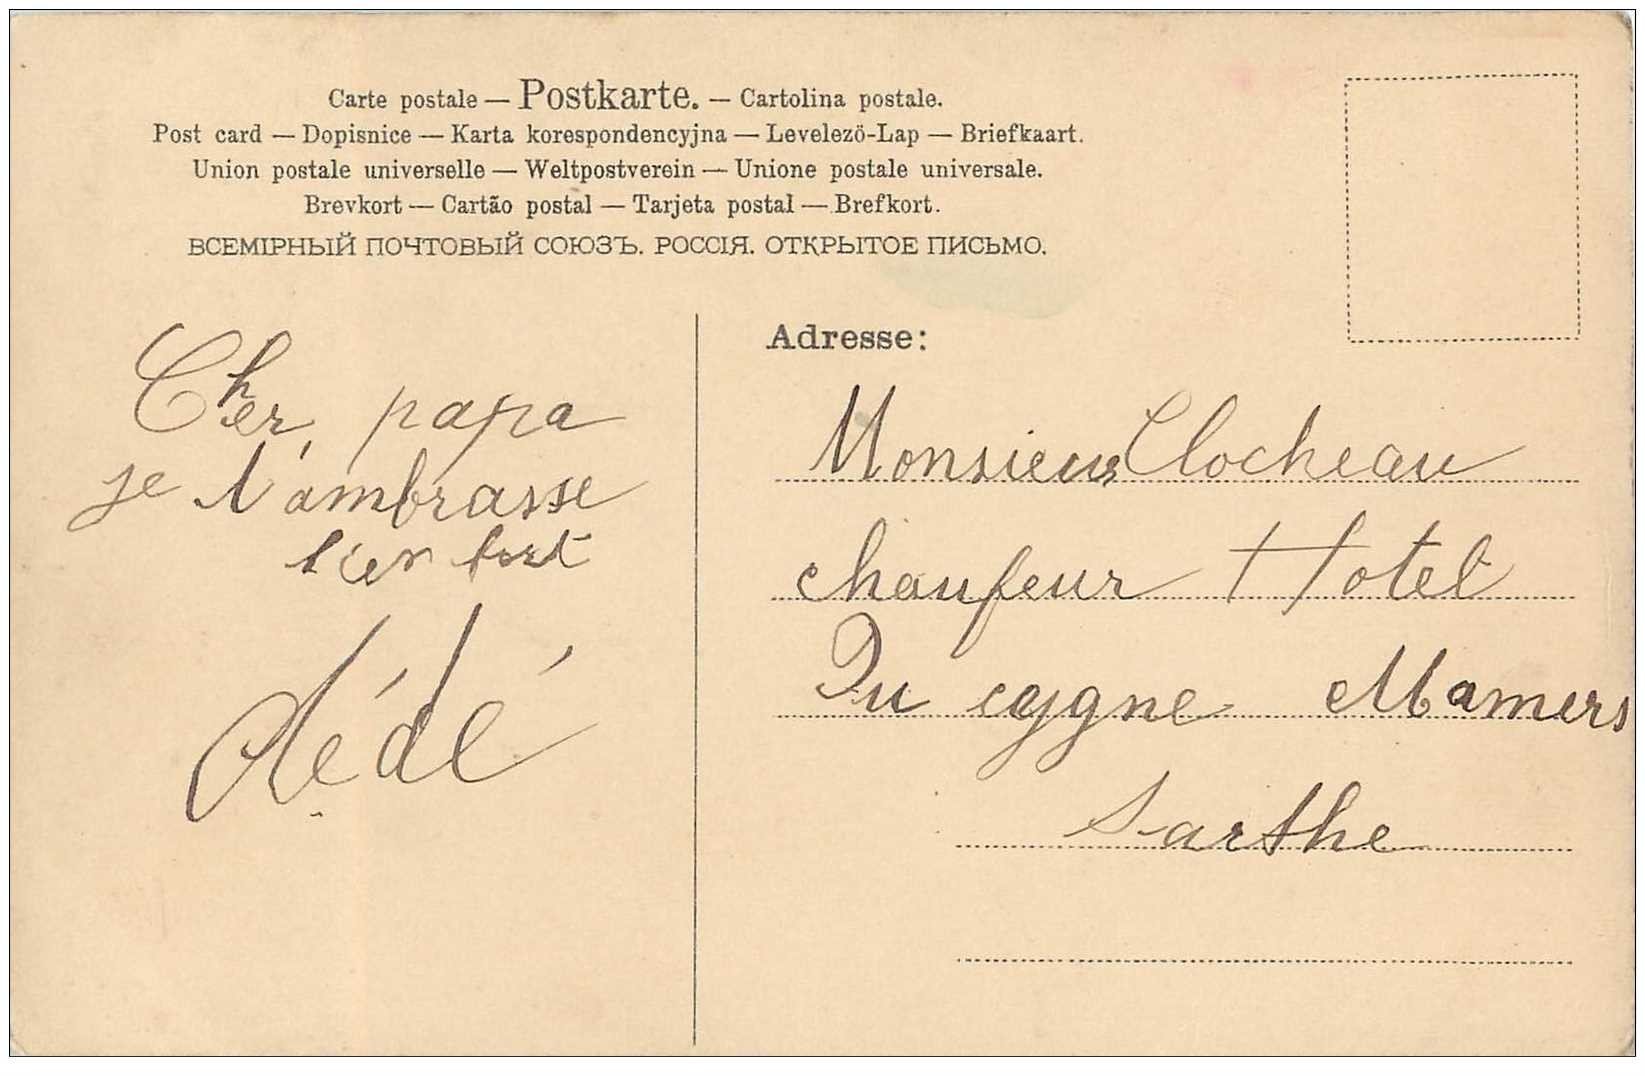 Carte postale — Postkarte. — Cartolina postale.
Post card — Dopisnice — Karta korespondencyjna — Levelezö-Lap — Briefkaart.
Union postale universelle — Weltpostverein — Unione postale universale.
Brevkort — Cartão postal — Tarjeta postal — Brefkort.
ВСЕМІРНЫЙ ПОЧТОВЫЙ СОЮЗЪ. РОССІЯ. ОТКРЫТОЕ ПИСЬМО.
Cher papa
je t'ambrasse
bien fort
Dédé
Adresse:
Monsieur Clocheau
chaufeur Hotel
Du cygne Mamers
Sarthe